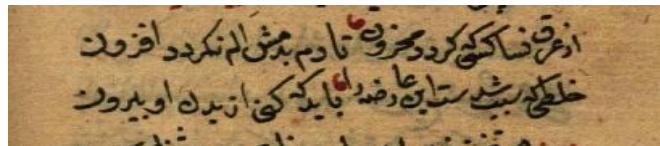 از عرق نسا کسی کردد محزون تا دم بدمش الم نکردد افزون
خلطی که سبب شدست این عارضه را باید که کنی از بدن او بیرون